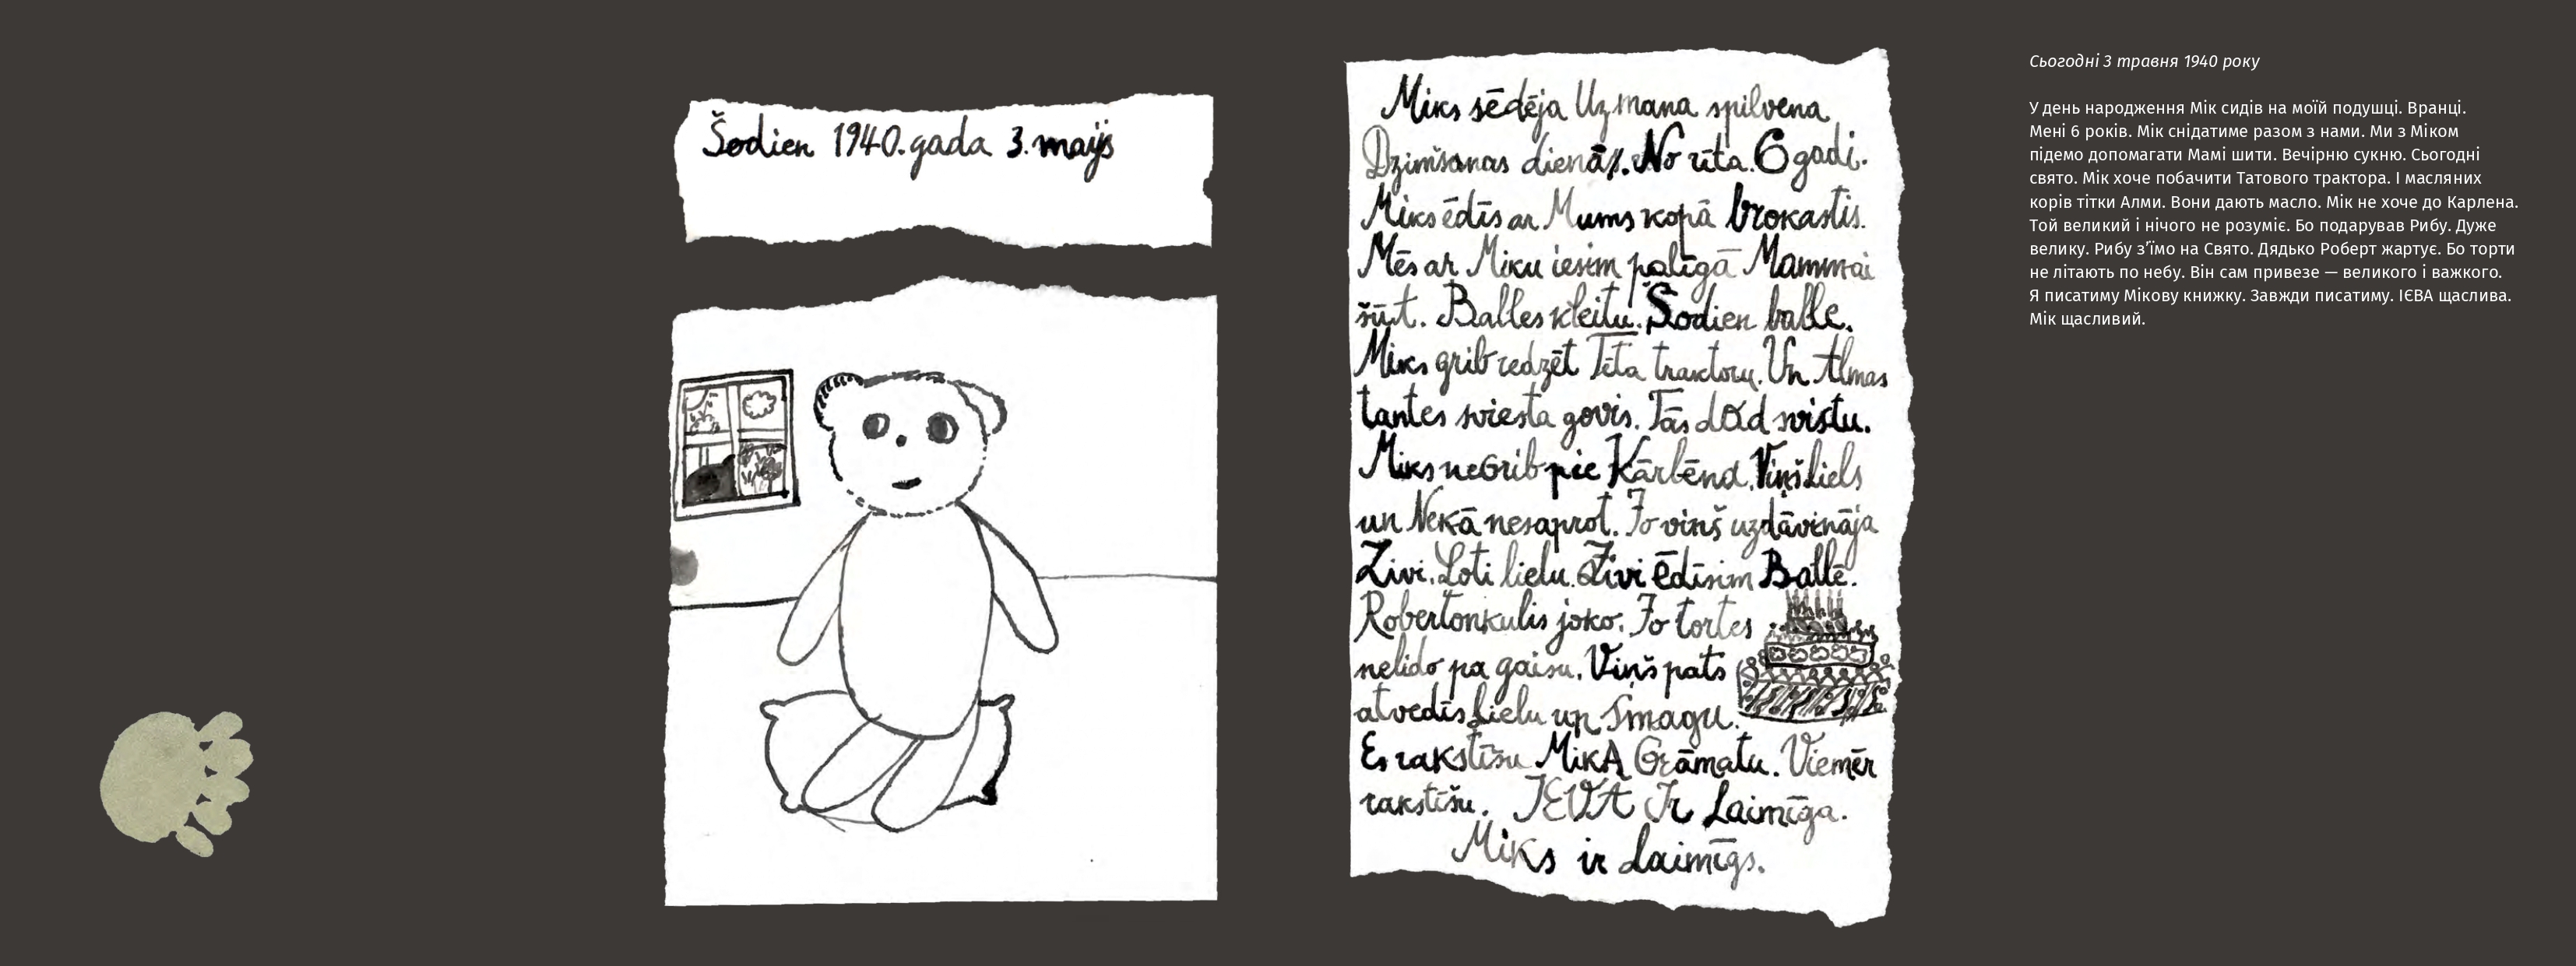 Šodien 1940.gada 3.maijs
Miks sēdēja Uz mana spilvena
Dzimšanas dienā. No rīta. 6 gadi.
Miks ēdīs ar Mums kopā brokastis.
Mēs ar Miku iesim palīgā Mammai
šūt. Balles kleitu. Šodien balle.
Miks grib redzēt Tēta traktoru. Un Almas
tantes sviesta govis. Tās dod svistu.
Miks neGrib pie Kārlēna. Viņš liels
un Nekā nesaprot. Jo viņš uzdāvināja
Zivi. Ļoti lielu. Zivi ēdīsim Ballē.
Robertonkulis joko. Jo tortes
nelido pa gaisu. Viņš pats
atvedīs lielu un Smagu.
Es rakstīšu MikA Grāmatu. Viemēr
rakstīšu. IEVA Ir Laimīga.
Miks ir Laimīgs.
Сьогодні 3 травня 1940 року
У день народження Мік сидів на моїй подушці. Вранці.
Мені 6 років. Мік снідатиме разом з нами. Ми з Міком
підемо допомагати Мамі шити. Вечірню сукню. Сьогодні
свято. Мік хоче побачити Татового трактора. І масляних
корів тітки Алми. Вони дають масло. Мік не хоче до Карлена.
Той великий і нічого не розуміє. Бо подарував Рибу. Дуже
велику. Рибу з’їмо на Свято. Дядько Роберт жартує. Бо торти
не літають по небу. Він сам привезе — великого і важкого.
Я писатиму Мікову книжку. Завжди писатиму. ІЄВА щаслива.
Мік щасливий.